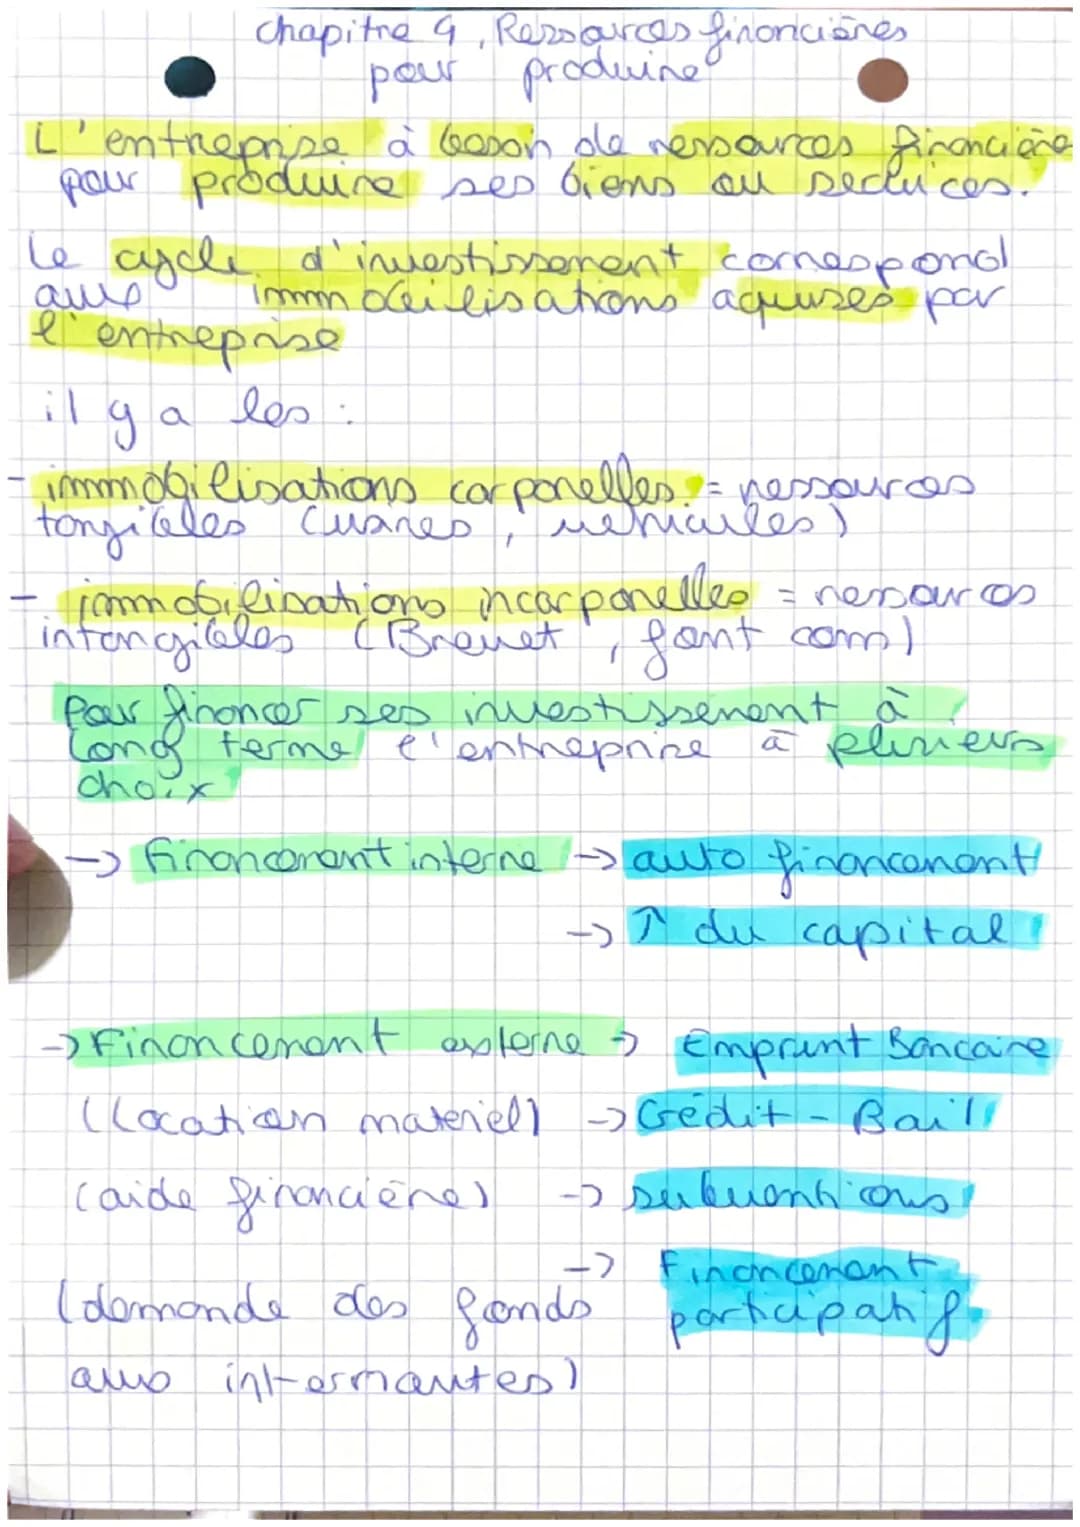 chapitre 9, Ressources financières
pour produire
L'entreprise à besoin de ressources financière
pour produire ses biens ou services.
Le cycle d'investissement correspond
aux immobilisations aquises par
l'entreprise
il y a les :
- immobilisations corporelles = ressources
tangibles (usines, véhicules)
- immobilisations incorporelles = ressources
intangibles (Brevet, font com)
Pour financer ses investissement à
long terme l'entreprise à plusieurs
choix
-> Financement interne -> auto financement
-> ↑ du capital
-> Financement externe -> Emprunt Bancaire
(Location materiel) -> Crédit - Bail
(aide financière) -> subventions
-> Financement
(demande des fonds participatif
aux internautes)